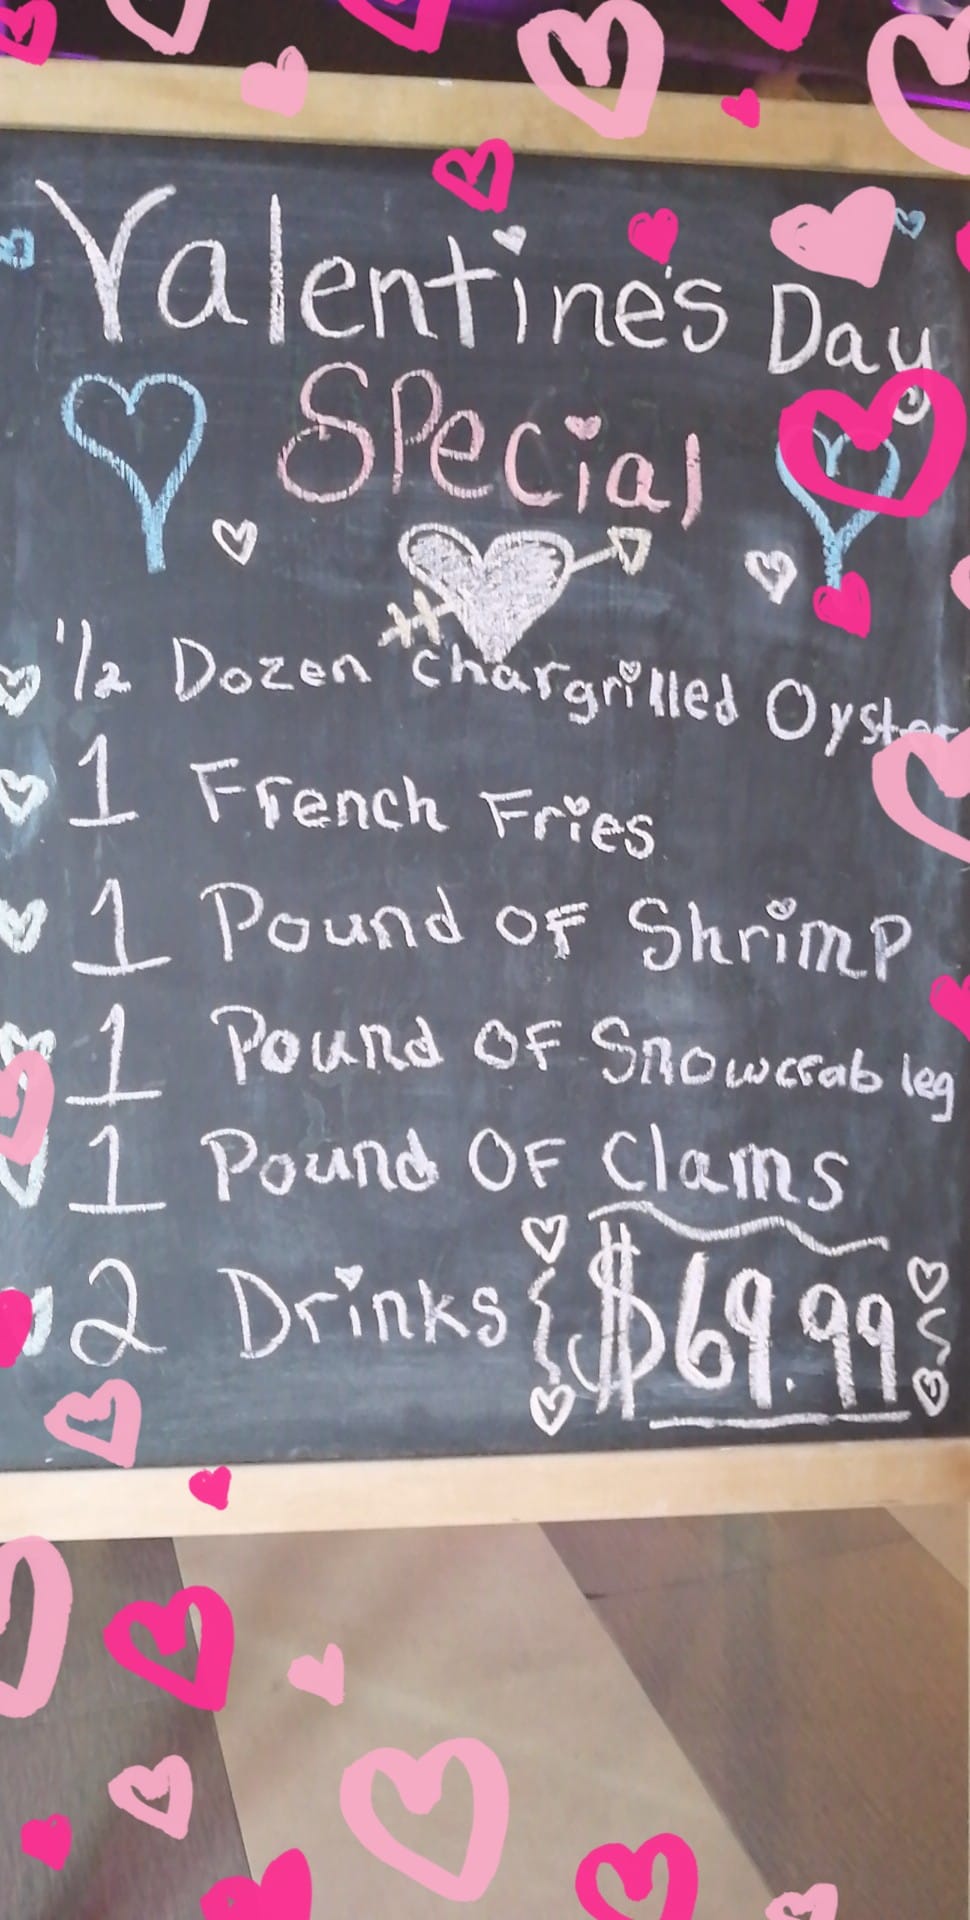 Valentine's Day
Special
1/2 Dozen chargrilled Oyster
1 French Fries
1 Pound OF Shrimp
1 Pound OF Snowcrab leg
1 Pound OF Clams
2 Drinks $69.99